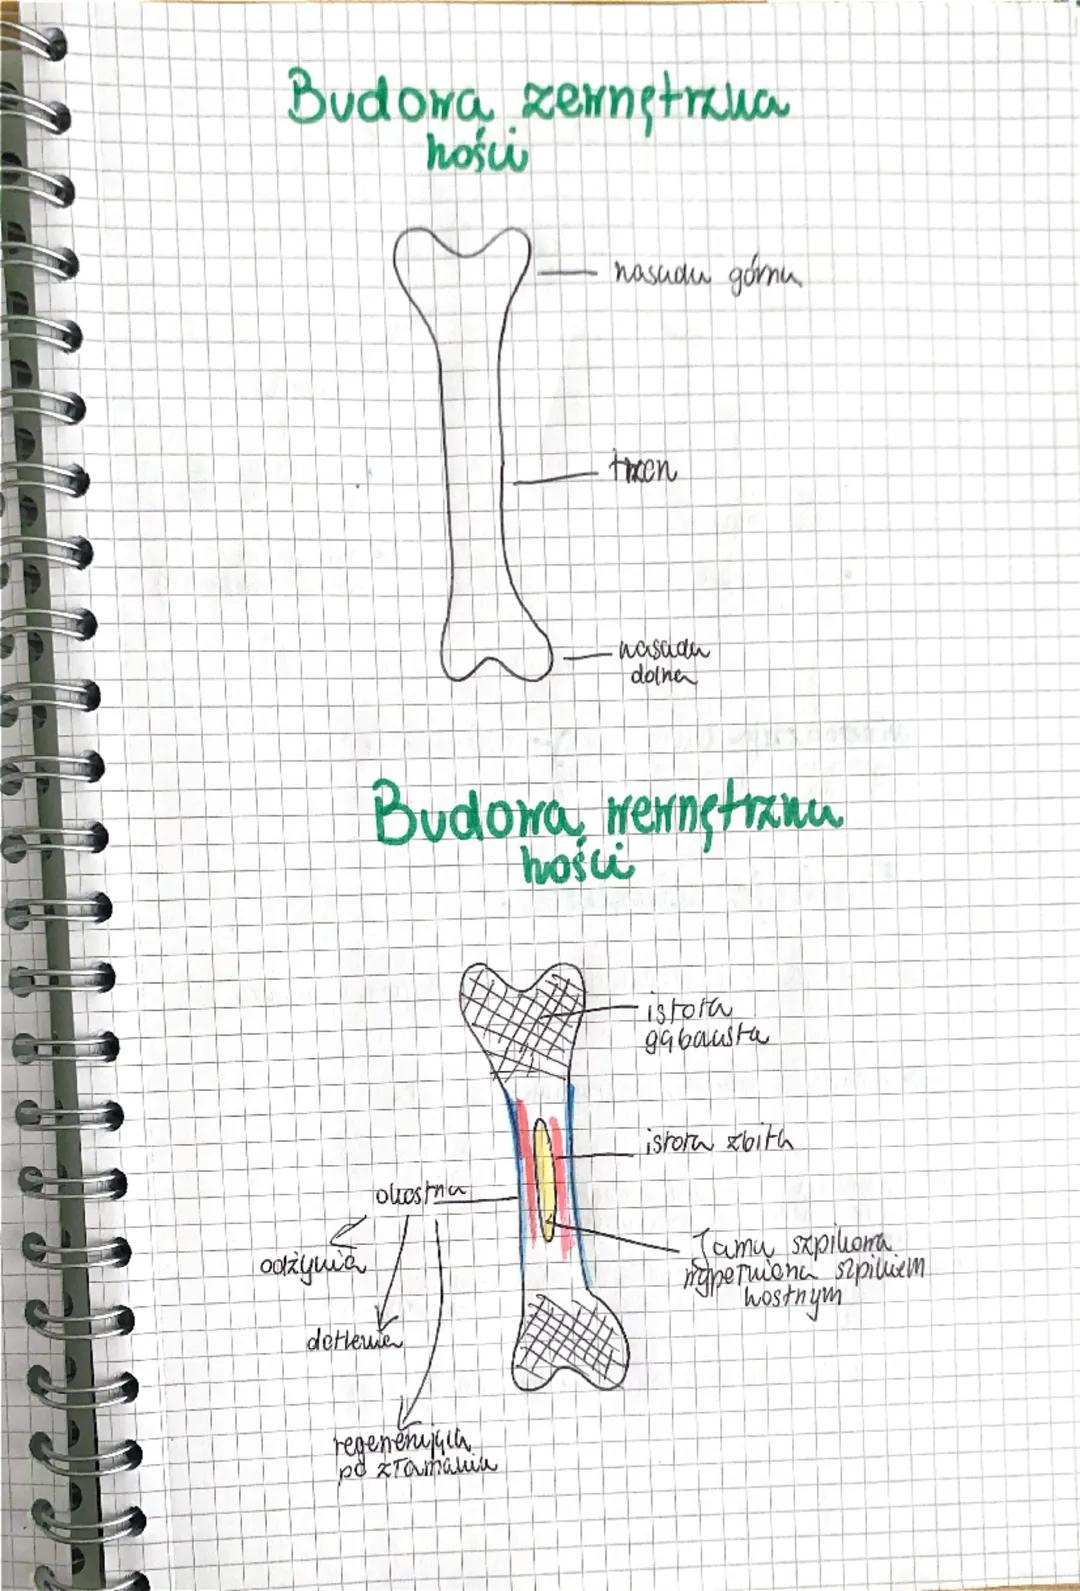 Budowa zewnętrzna
kości
nasada górna
trzon
nasada
dolna
Budowa wewnętrzna
kości
istota
gąbczasta
istota zbita
okostna
odżywia
Jama szpikowa
wypełniona szpikiem
kostnym
dotlenia
regenerująca
po złamaniu